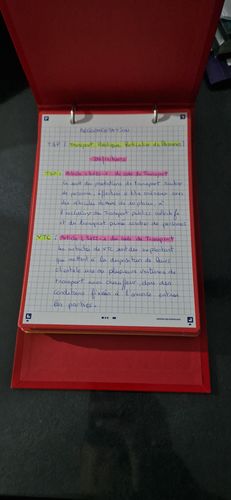 REGLEMENTATION
T3P [ Transport Public Particulier de Personnes ]
Définitions
T3P : Article L 3120-1 du code du Transport
Ce sont des prestations de transport routier
de personnes, effectuées à titre onéreux avec
des véhicules de moins de 10 places, à
l'exclusion des Transport publics collectifs
et du transport privé routier de personnes
VTC : Article L 3122-1 du code du Transport
Les activités de VTC sont des exploitants
qui mettent à la disposition de leurs
clientèle une ou plusieurs voitures de
transport avec chauffeur, dans des
conditions fixées à l'avance entre
les parties.